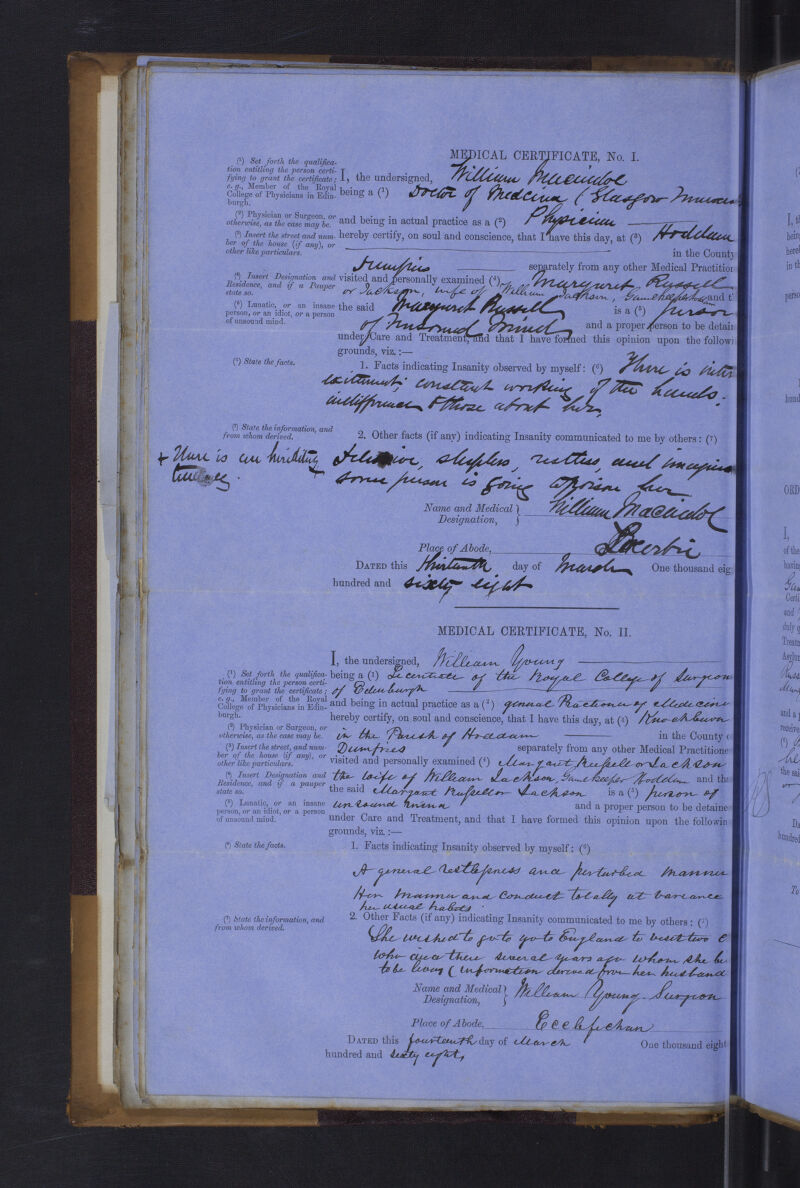 MEDICAL CERTIFICATE, No. I.
(¹) Set forth the qualifica-
tion entitling the person certi-
fying to grant the certificate;
e. g., Member of the Royal
College of Physicians in Edin-
burgh.
I, the undersigned, William Macindoe
being a (¹) Doctor of Medicine (Glasgow
(²) Physician or Surgeon, or
otherwise, as the case may be.
and being in actual practice as a (²) Physician
(³) Insert the street and num-
ber of the house (if any), or
other like particulars.
hereby certify, on soul and conscience, that I have this day, at (³) Hoddam
in the County
Dumfries separately from any other Medical Practition
(⁴) Insert Designation and
Residence, and if a Pauper
state so.
visited and personally examined (⁴) Margaret Russell
or Jackson, wife of William Jackson, Gamekeeper and t
(⁵) Lunatic, or an insane
person, or an idiot, or a person
of unsound mind.
the said Margaret Russell is a (⁵) person
of Unsound Mind and a proper person to be detai
under Care and Treatment, and that I have formed this opinion upon the followi
grounds, viz. :—
(⁶) State the facts.
1. Facts indicating Insanity observed by myself: (⁶) There is
excitement, constant working of the hands.
indifference to those about her
(⁷) State the information, and
from whom derived.
2. Other facts (if any) indicating Insanity communicated to me by others: (⁷)
+ There is an hereditary
tendency.
sleepless, restless, and imagines
some person is going to poison her
Name and Medical
Designation,
William Macindoe
Place of Abode, Lockerbie
DATED this thirteenth day of March One thousand eig
hundred and sixty eight
MEDICAL CERTIFICATE, No. II.
I, the undersigned, William Young
(¹) Set forth the qualifica-
tion entitling the person certi-
fying to grant the certificate;
e. g., Member of the Royal
College of Physicians in Edin-
burgh.
being a (¹) Licentiate of the Royal College of Surgeon
of Edenburgh
(²) Physician or Surgeon, or
otherwise, as the case may be.
and being in actual practice as a (²) general Practioner of Medicine
(³) Insert the street, and num-
ber of the house (if any), or
other like particulars.
hereby certify, on soul and conscience, that I have this day, at (³) Knockburn
in the Parish of Hoddam in the County
Dumfries separately from any other Medical Practitione
(⁴) Insert Designation and
Residence, and if a pauper
state so.
visited and personally examined (⁴) Margaret Russell or Jackson
the wife of William Jackson, Gamekeeper Hoddam and th
(⁵) Lunatic, or an insane
person, or an idiot, or a person
of unsound mind.
the said Margaret Russell or Jackson is a (⁵) person of
unsound mind and a proper person to be detaine
under Care and Treatment, and that I have formed this opinion upon the followin
grounds, viz. :—
(⁶) State the facts.
1. Facts indicating Insanity observed by myself: (⁶)
A general restlessness and perturbed manner
Her manner and conduct totally at variance
her usual habits
(⁷) State the information, and
from whom derived.
2. Other Facts (if any) indicating Insanity communicated to me by others: (⁷)
She wished to go to go to England to visit two
who died there several years ago whom she be
to be living (information derived from her husband
Name and Medical
Designation,
William Young Surgeon
Place of Abode, Ecclefechan
DATED this fourteenth day of March One thousand eight
hundred and sixty eight,